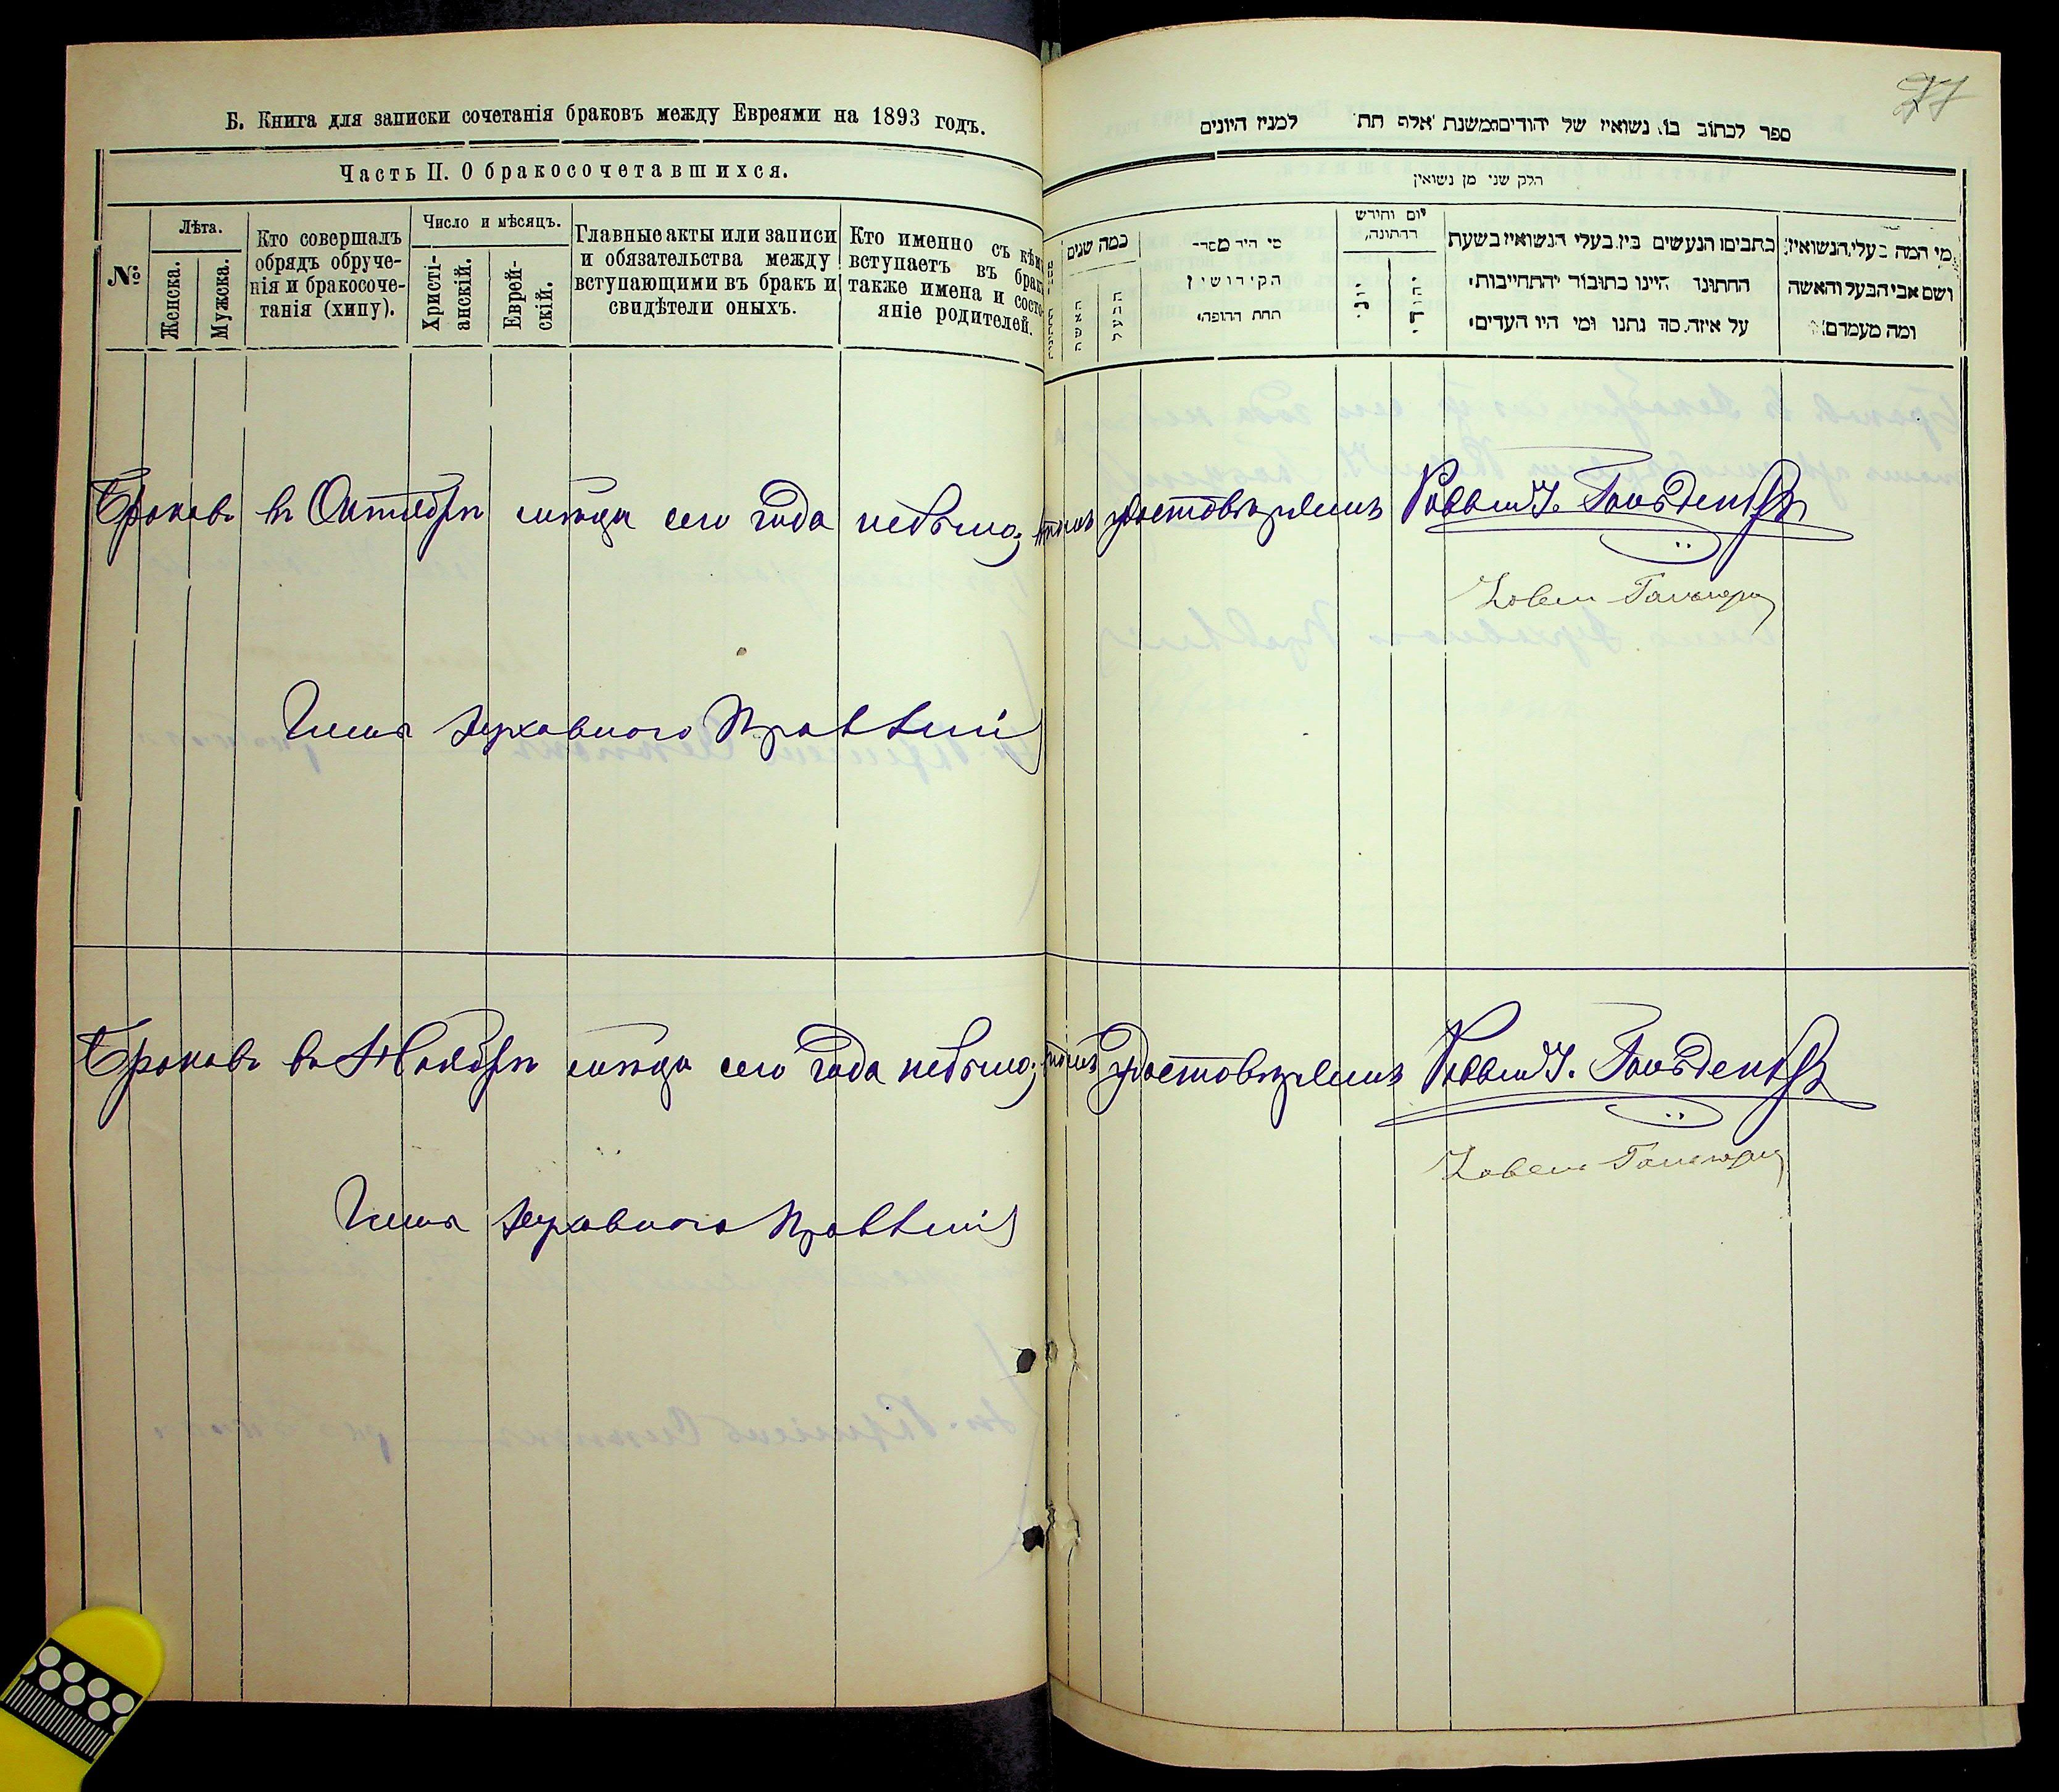 Б. Книга для записки сочетанія браковъ между Евреями на 1893 годъ.
Часть II. О бракосочетавшихся.
№
Лѣта.
Женска.
Мужска.
Кто совершалъ
обрядъ обруче-
нія и бракосоче-
танія (хипу).
Число и мѣсяцъ.
Христі-
анскій.
Еврей-
скій.
Главные акты или записи
и обязательства между
вступающими въ бракъ и
свидѣтели оныхъ.
Кто именно съ кѣмъ
вступаетъ въ бракъ
также имена и состо-
яніе родителей.
77
ספר לכתוב בו נשואין של יהודים משנת אלף תת למנין היונים
חלק שני מן נשואין
מי המה בעלי הנשואין
ושם אבי הבעל והאשה
ומה מעמדם
כתבים הנעשים בין בעלי הנשואין בשעת
החתונה היינו כתובות והתחייבות
על איזה סך נתנו ומי היו העדים
יום וחודש
החתונה
יהודי
יוני
מי היה מסדר
הקידושין
תחת החופה
כמה שנים
הבעל
האשה
Браковъ въ Октябрѣ мѣсяцѣ сего года небыло; въ томъ удостовѣряемъ Раввинъ Гольденбергъ
Члены Духовного Правленія
Браковъ въ Ноябрѣ мѣсяцѣ сего года небыло; въ томъ удостовѣряемъ Раввинъ Гольденбергъ
Члены Духовного Правленія